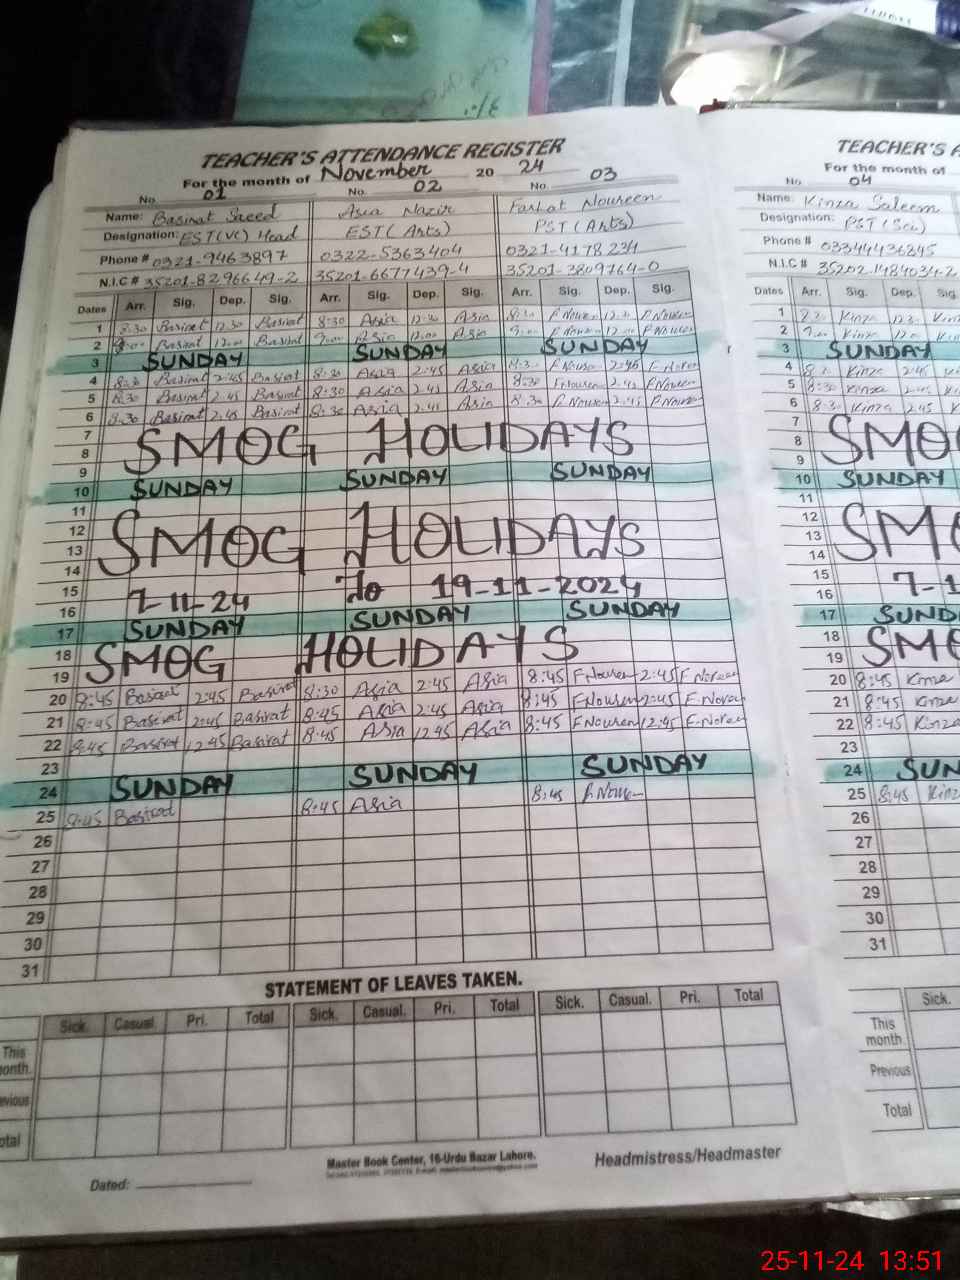 TEACHER'S ATTENDANCE REGISTER
For the month of November 2024
No. 01 No. 02 No. 03
Name: Basirat Saeed Asia Nazir Farhat Noureen
Designation: EST(VC) Head EST(Arts) PST(Arts)
Phone # 0321-9463897 0322-5363404 0321-4178234
N.I.C # 35201-8296649-2 35201-6677439-4 35201-3809764-0
Dates Arr. Sig. Dep. Sig. Arr. Sig. Dep. Sig. Arr. Sig. Dep. Sig.
1 8:30 Basirat 12:30 Basirat 8:30 Asia 12:30 Asia 8:30 F.Nouren F.Nouren
2 Basirat 12:00 Basirat 9:00 Asia 12:00 Asia 9:00 F.Nouren F.Nouren
3 SUNDAY SUNDAY SUNDAY
4 8:30 Basirat 2:45 Basirat 8:30 Asia 2:45 Asia 8:30 F.Nouren 2:45 F.Nouren
5 8:30 Basirat 2:45 Basirat 8:30 Asia 2:45 Asia 8:30 F.Nouren 2:45 F.Nouren
6 8:30 Basirat 2:45 Basirat 8:30 Asia 2:45 Asia 8:30 F.Nouren 2:45 F.Nouren
7
8 SMOG HOLIDAYS
9
10 SUNDAY SUNDAY SUNDAY
11
12
13 SMOG HOLIDAYS
14
15 7-11-24 To 19-11-2024
16
17 SUNDAY SUNDAY SUNDAY
18
19 SMOG HOLIDAYS
20 8:45 Basirat 2:45 Basirat 8:30 Asia 2:45 Asia 8:45 F.Nouren 2:45 F.Noreen
21 8:45 Basirat 2:45 Basirat 8:45 Asia 2:45 Asia 8:45 F.Nouren 2:45 F.Noren
22 8:45 Basirat 12:45 Basirat 8:45 Asia 12:45 Asia 8:45 F.Nouren 12:45 F.Noren
23
24 SUNDAY SUNDAY SUNDAY
25 8:45 Basirat 8:45 Asia 8:45 F.Nouren
26
27
28
29
30
31
STATEMENT OF LEAVES TAKEN.
Sick. Casual. Pri. Total Sick. Casual. Pri. Total Sick. Casual. Pri. Total
This
onth.
evious
otal
Master Book Center, 16-Urdu Bazar Lahore.
Headmistress/Headmaster
Dated:
TEACHER'S A
For the month of
No 04
Name: Kinza Saleem
Designation: PST(Sci)
Phone # 03344436245
N.I.C # 35202-1484034-2
Dates Arr. Sig. Dep. Sig
1 Kinza
2 Kinza
3 SUNDAY
4 Kinza 2:45
5 8:30 Kinza 2:45
6 8:3 Kinza 2:45
7
8 SMOG
9
10 SUNDAY
11
12
13 SMO
14
15 7-1
16
17 SUND
18
19 SMO
20 8:45
21 8:45
22 8:45 Kinza
23
24 SUN
25 8:45 Kinz
26
27
28
29
30
31
Sick.
This
month.
Previous
Total
25-11-24 13:51